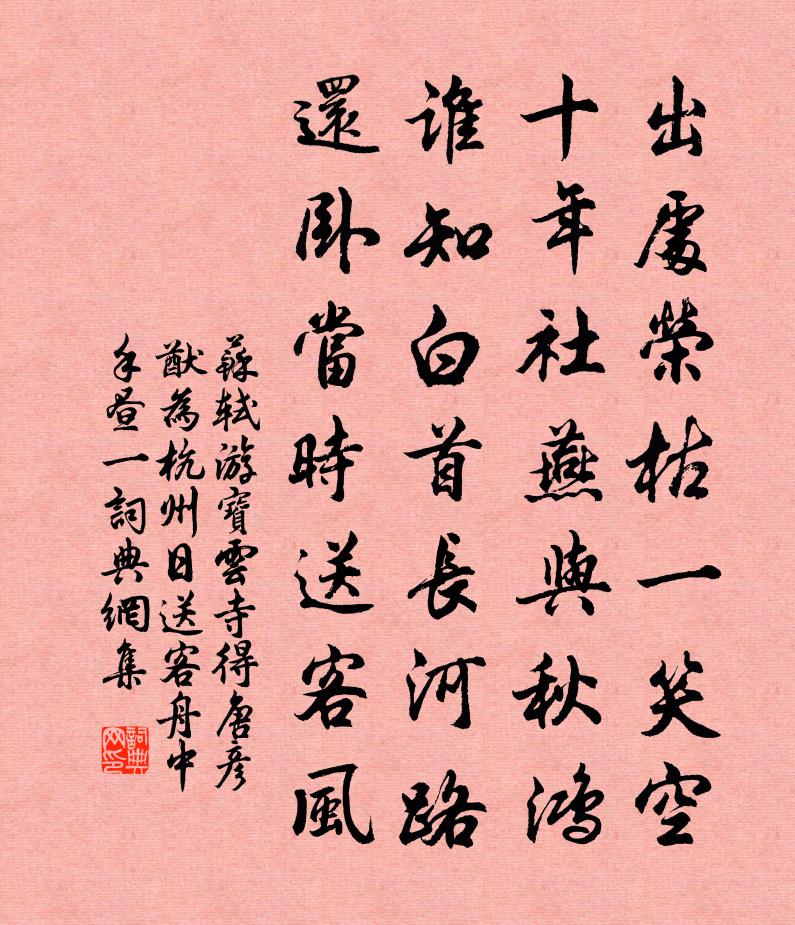 出處榮枯一笑空
十年社燕與秋鴻
誰知白首長河路
還卧當時送客風
蘇軾游寶雲寺得唐彥
猷為杭州日送客舟中
手書一詞典網集
詞典
网印